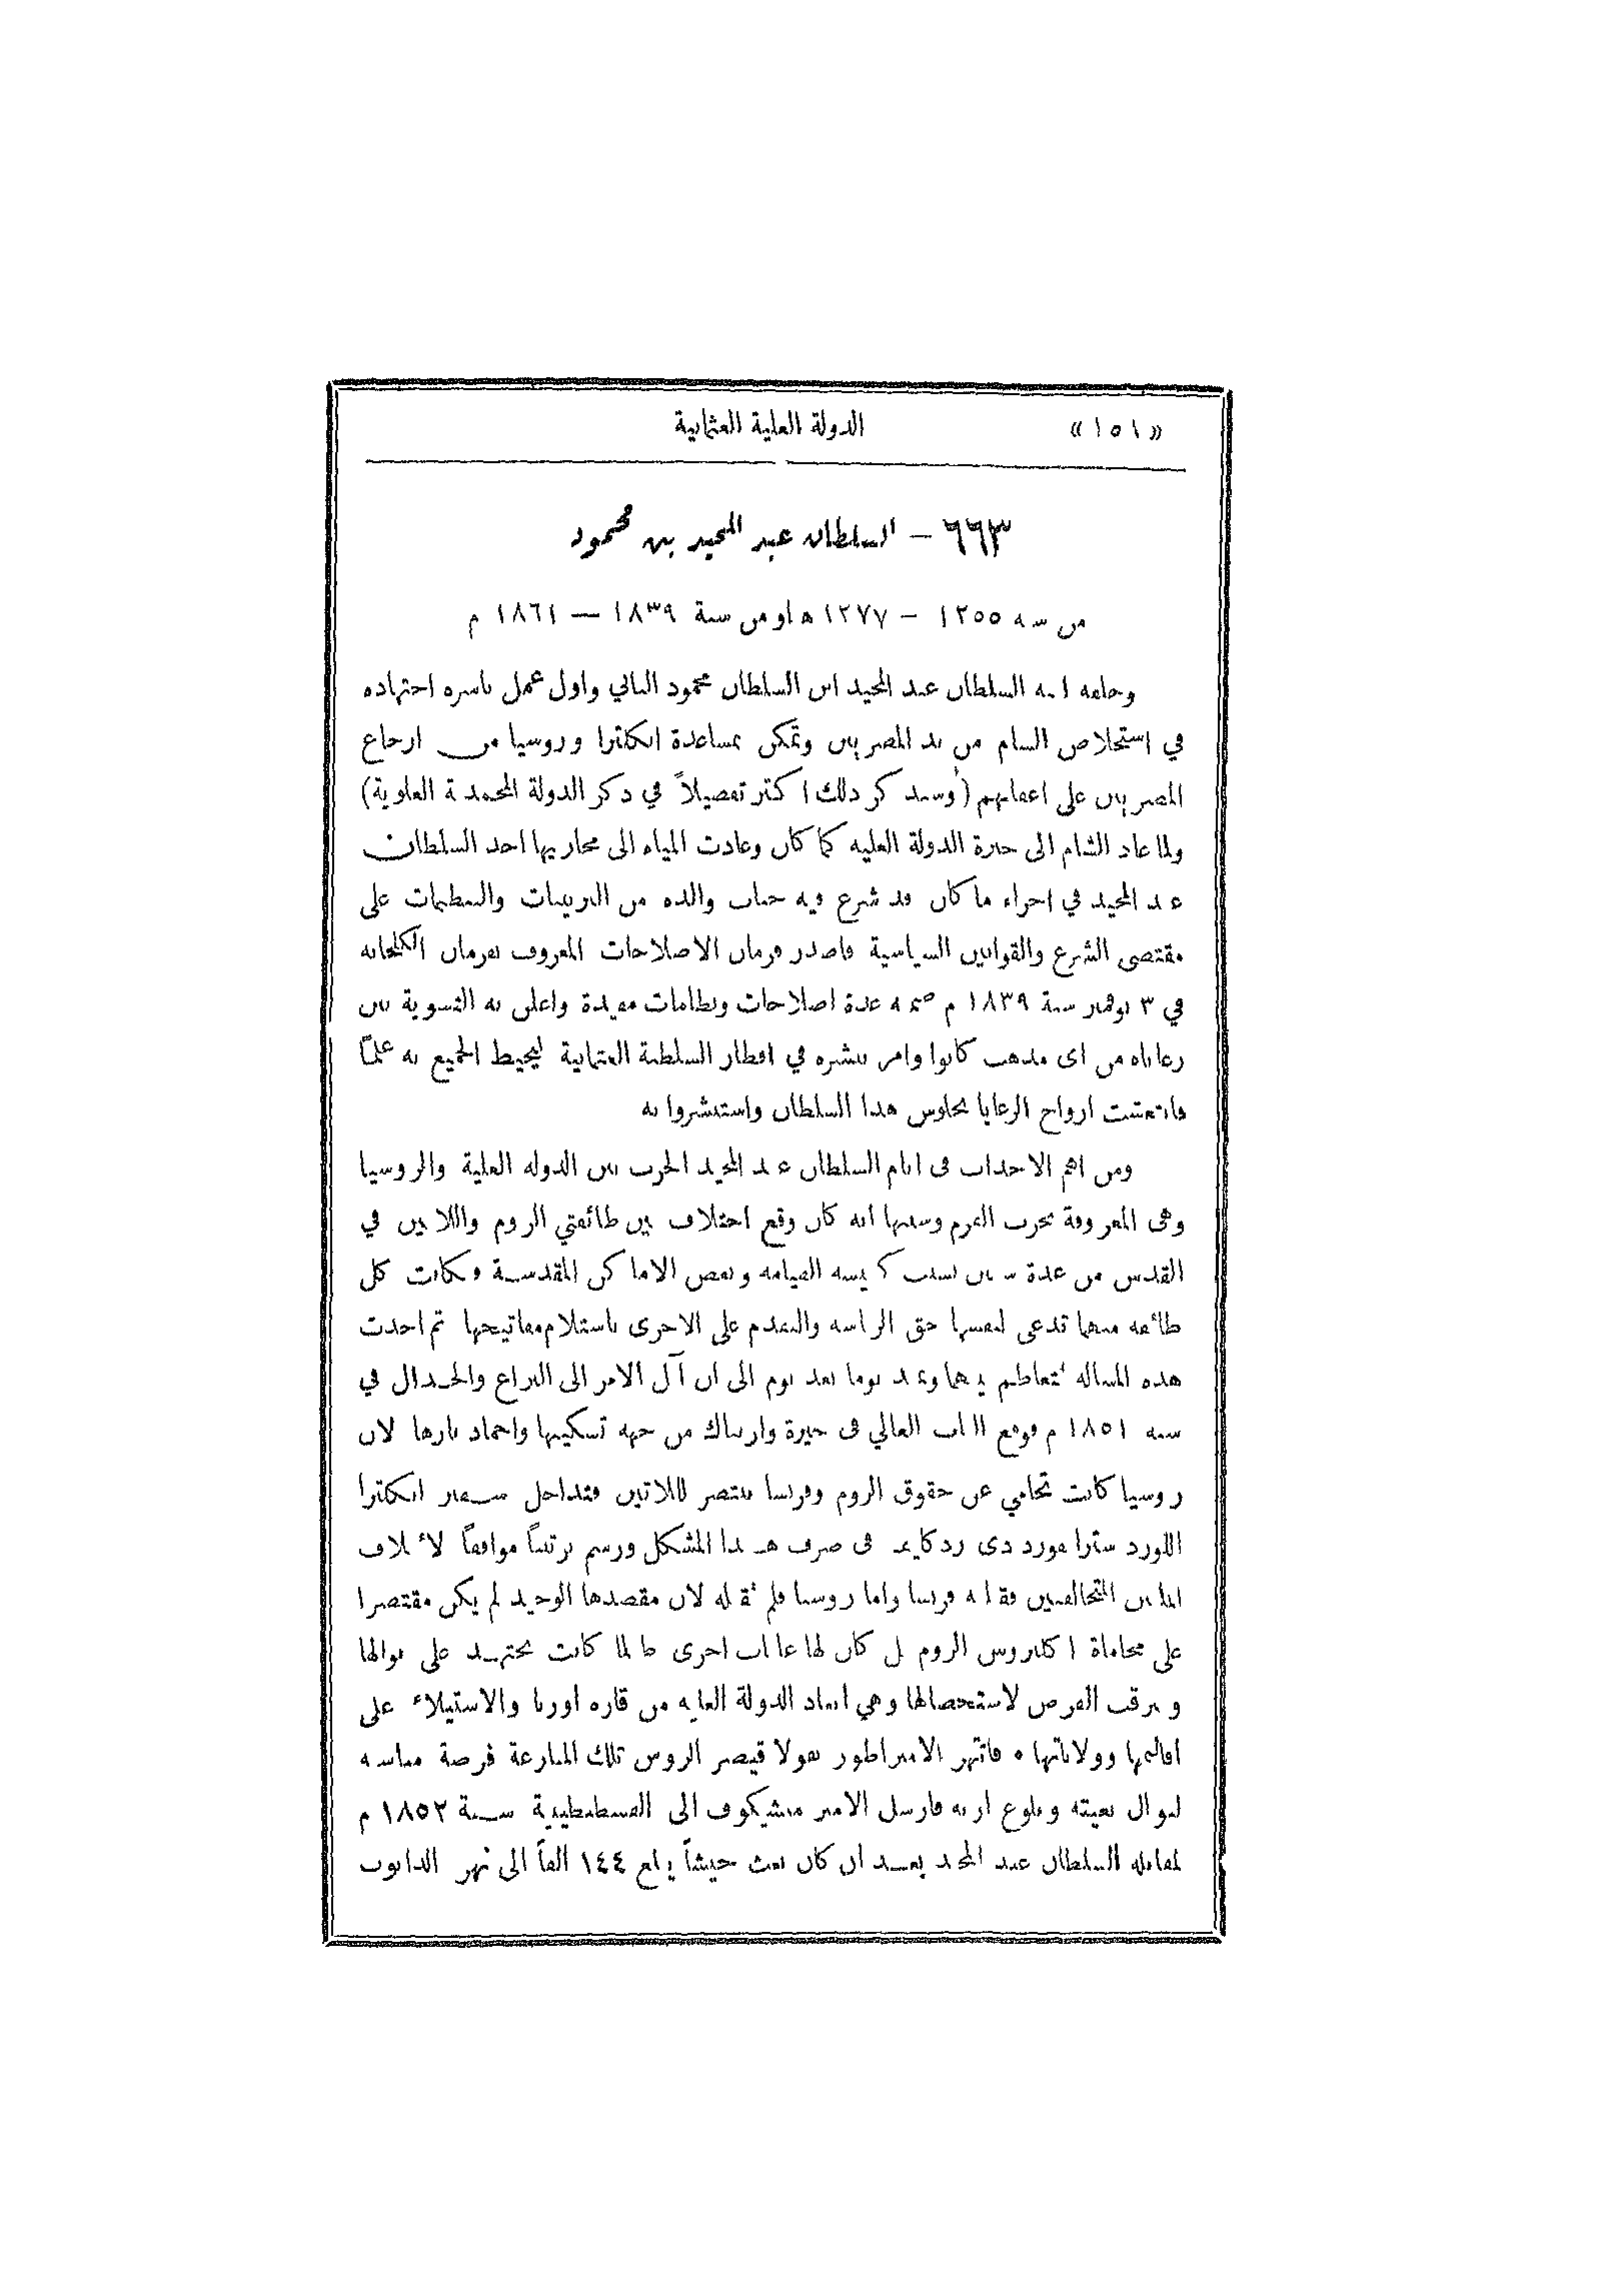 «١٥١» الدولة العلية العثمانية
٦٦٣ – السلطان عبد المجيد بن محمود
من سنة ١٢٥٥ – ١٢٧٧ هـ او من سنة ١٨٣٩ — ١٨٦١ م
وخلفه ابنه السلطان عبد المجيد ابن السلطان محمود الثاني واول عمل باشره اجتهاده
في استخلاص الشام من يد المصريين وتمكن بمساعدة انكلترا وروسيا من ارجاع
المصريين على اعقابهم (وسيذكر ذلك اكثر تفصيلاً في ذكر الدولة المحمدية العلوية)
ولما عاد الشام الى حيزة الدولة العلية كما كان وعادت المياه الى مجاريها اخذ السلطان
عبد المجيد في اجراء ما كان قد شرع فيه جناب والده من الترتيبات والتنظيمات على
مقتضى الشرع والقوانين السياسية فاصدر فرمان الاصلاحات المعروف بفرمان الكلخانه
في ٣ نوفمبر سنة ١٨٣٩ م ضمنه عدة اصلاحات ونظامات مفيدة واعلن به التسوية بين
رعاياه من اى مذهب كانوا وامر بنشره في اقطار السلطنة العثمانية ليحيط الجميع به علماً
فانتعشت ارواح الرعايا بجلوس هذا السلطان واستبشروا به
ومن اهم الاحداث فى ايام السلطان عبد المجيد الحرب بين الدولة العلية والروسيا
وهى المعروفة بحرب القرم وسببها انه كان وقع اختلاف بين طائفتي الروم واللاتين في
القدس من عدة سنين بسبب كنيسة القيامه وبعض الاماكن المقدسة فكانت كل
طائفه منهما تدعى لنفسها حق الرياسه والتقدم على الاخرى باستلام مفاتيحها ثم اخذت
هذه المساله تتعاظم بينهما وتمتد يوما بعد يوم الى ان آل الامر الى النزاع والجدال في
سنه ١٨٥١ م فوقع الباب العالي فى حيرة وارتباك من جهه تسكينها واخماد نارها لان
روسيا كانت تحامي عن حقوق الروم وفرنسا تنتصر لللاتين فتداخل سفير انكلترا
اللورد ستراتفورد دى ردكليف فى صرف هذا المشكل ورسم ترتيباً موافقاً لائتلاف
المتخالفين فقبلته فرنسا واما روسيا فلم تقبله لان مقصدها الوحيد لم يكن مقتصرا
على محاماة اكليروس الروم بل كان لها غايات اخرى طالما كانت تجتهد على نوالها
وترقب الفرص لاستحصالها وهي ابعاد الدولة العليه من قاره اوربا والاستيلاء على
اقاليمها وولاياتها ٠ فانتهز الامبراطور نقولا قيصر الروس تلك المنازعة فرصة مناسبه
لنوال بغيته وبلوغ اربه فارسل الامير منشيكوف الى القسطنطينية سنة ١٨٥٢ م
لمقابله السلطان عبد المجيد بعد ان كان بعث جيشاً يبلغ ١٤٤ الفاً الى نهر الدانوب